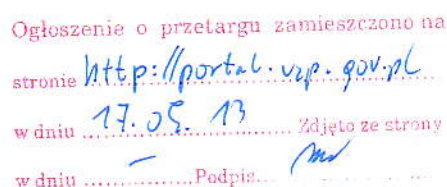 Ogłoszenie o przetargu zamieszczono na
stronie http://portal.uzp.gov.pl
w dniu 17.05.13 Zdjęto ze strony
w dniu – Podpis